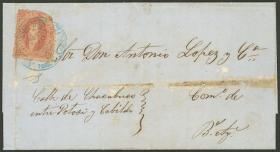 Sor Don Antonio Lopez y Ca
Calle de Chacabuco
entre Potosi y Cabildo
Como de
Bs Ays